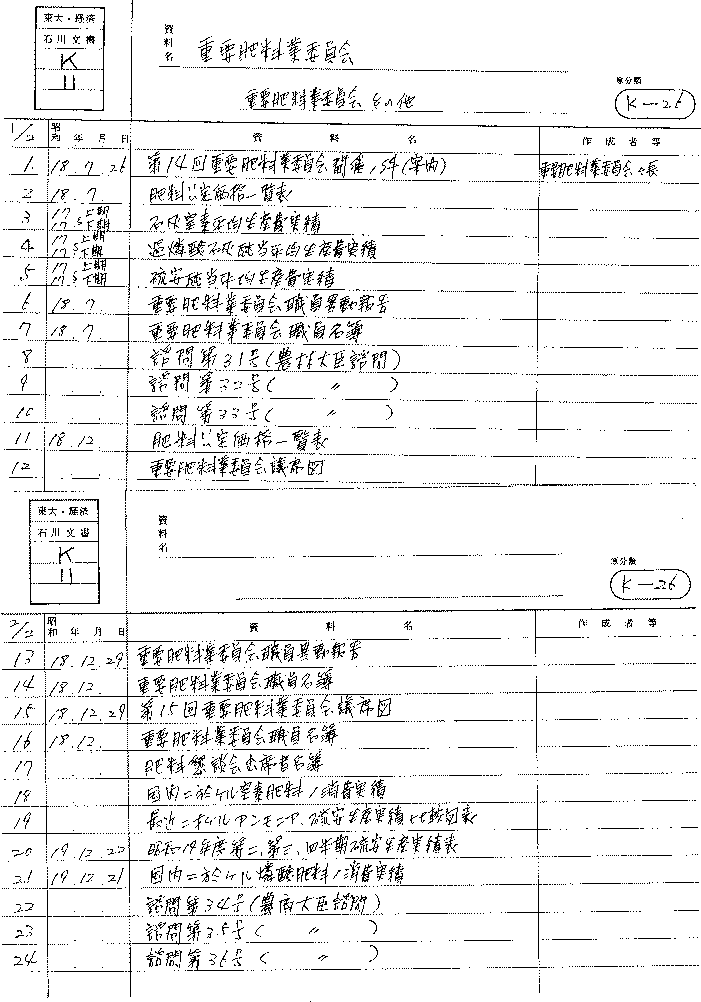 東大・経済
石川文書
K
11
資料名 重要肥料業委員会
重要肥料業委員会 その他
原分類
K-26
1/2 昭和 年 月 日 資 料 名 作 成 者 等
1. 18.7.26 第14回重要肥料業委員会開催ノ件(案内) 重要肥料業委員会々長
2 18.7 肥料公定価格一覧表
3 17上期 17下期 石灰窒素平均生産費実績
4 17上期 17下期 過燐酸石灰瓲当平均生産費実績
5 17上期 17下期 硫安瓲当平均生産費実績
6 18.7 重要肥料業委員会職員異動報告
7 18.7 重要肥料業委員会職員名簿
8 諮問第31号(農林大臣諮問)
9 諮問第32号( 〃 )
10 諮問第33号( 〃 )
11 18.12 肥料公定価格一覧表
12 重要肥料業委員会議席図
東大・経済
石川文書
K
11
資料名
原分類
K-26
2/2 昭和 年 月 日 資 料 名 作 成 者 等
13 18.12.29 重要肥料業委員会職員異動報告
14 18.12. 重要肥料業委員会職員名簿
15 18.12.29 第15回重要肥料業委員会議席図
16 18.12. 重要肥料業委員会職員名簿
17 肥料懇談会出席者名簿
18 国内ニ於ケル窒素肥料ノ消費実績
19 最近ニオケルアンモニア、硫安生産実績比較表
20 19.12.22 昭和19年度第二、第三、四半期硫安生産実績表
21 19.12.21 国内ニ於ケル燐酸肥料ノ消費実績
22 諮問第34号(農商大臣諮問)
23 諮問第35号( 〃 )
24 諮問第36号( 〃 )